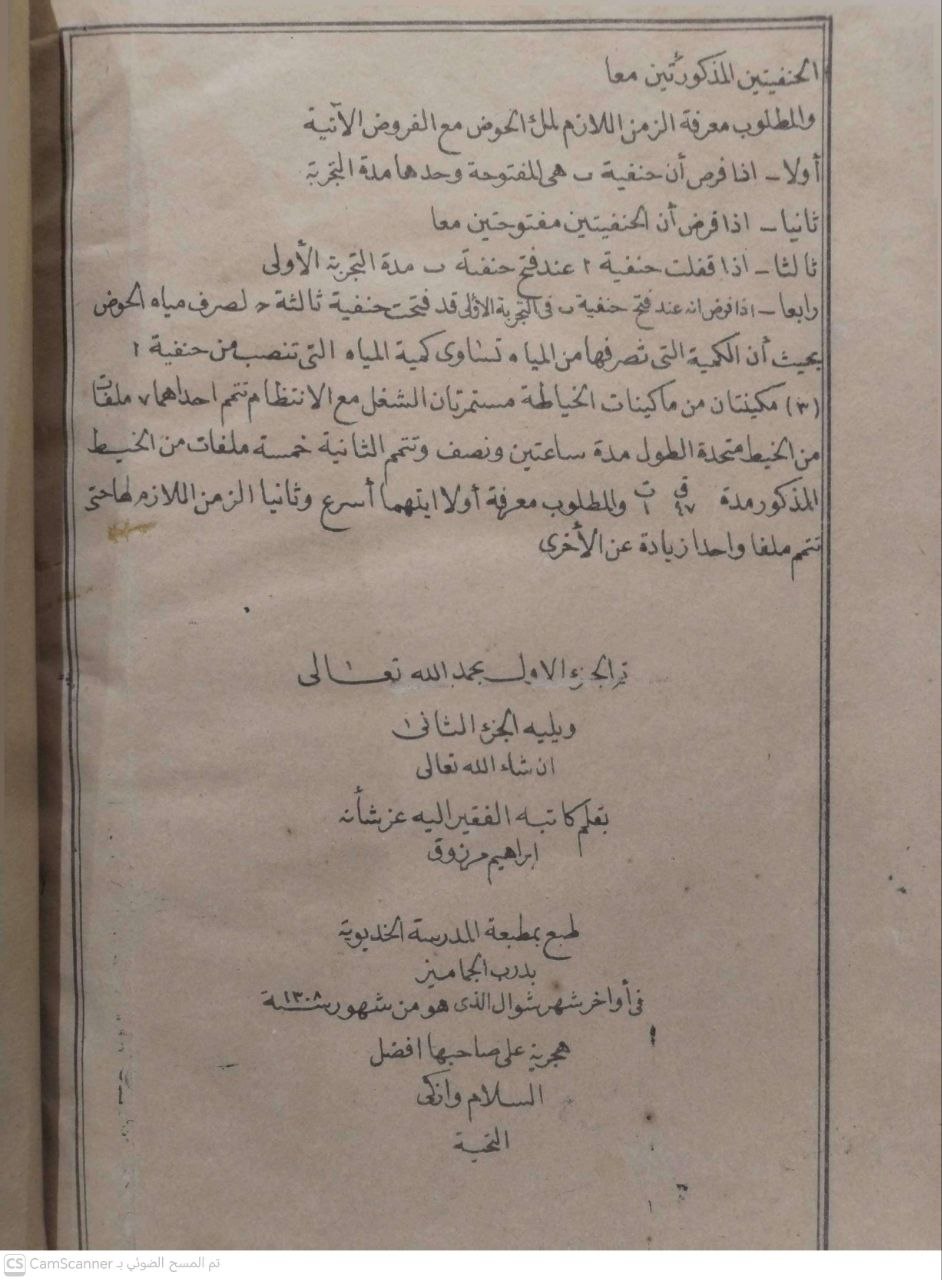 الحنفيتين المذكورتين معا
والمطلوب معرفة الزمن اللازم لملء الحوض مع الفروض الآتية
أولا ـ اذا فرض أن حنفية ب هى المفتوحة وحدها مدة التجربة
ثانيا ـ اذا فرض أن الحنفيتين مفتوحتين معا
ثالثا ـ اذا قفلت حنفية ا عند فتح حنفية ب مدة التجربة الأولى
رابعا ـ اذا فرض انه عند فتح حنفية ب فى التجربة الأولى قد فتحت حنفية ثالثة ح لصرف مياه الحوض
بحيث أن الكمية التى تصرفها من المياه تساوى كمية المياه التى تنصب من حنفية ا
(٣) مكينتان من ماكينات الخياطة مستمرتان الشغل مع الانتظام تتمم احداهما ٧ ملفات
من الخيط متحدة الطول مدة ساعتين ونصف وتتمم الثانية خمسة ملفات من الخيط
المذكور مدة ٤٧ق ١ت والمطلوب معرفة أولا ايتهما أسرع وثانيا الزمن اللازم لها حتى
تتمم ملفا واحدا زيادة عن الأخرى
تم الجزء الاول بحمد الله تعالى
ويليه الجزء الثانى
ان شاء الله تعالى
بقلم كاتبه الفقير اليه عز شأنه
ابراهيم مرزوق
طبع بمطبعة المدرسة الخديوية
بدرب الجماميز
فى أواخر شهر شوال الذى هو من شهور سنة ١٣٠٨
هجرية على صاحبها افضل
السلام وازكى
التحية
CS CamScanner تم المسح الضوئي بـ